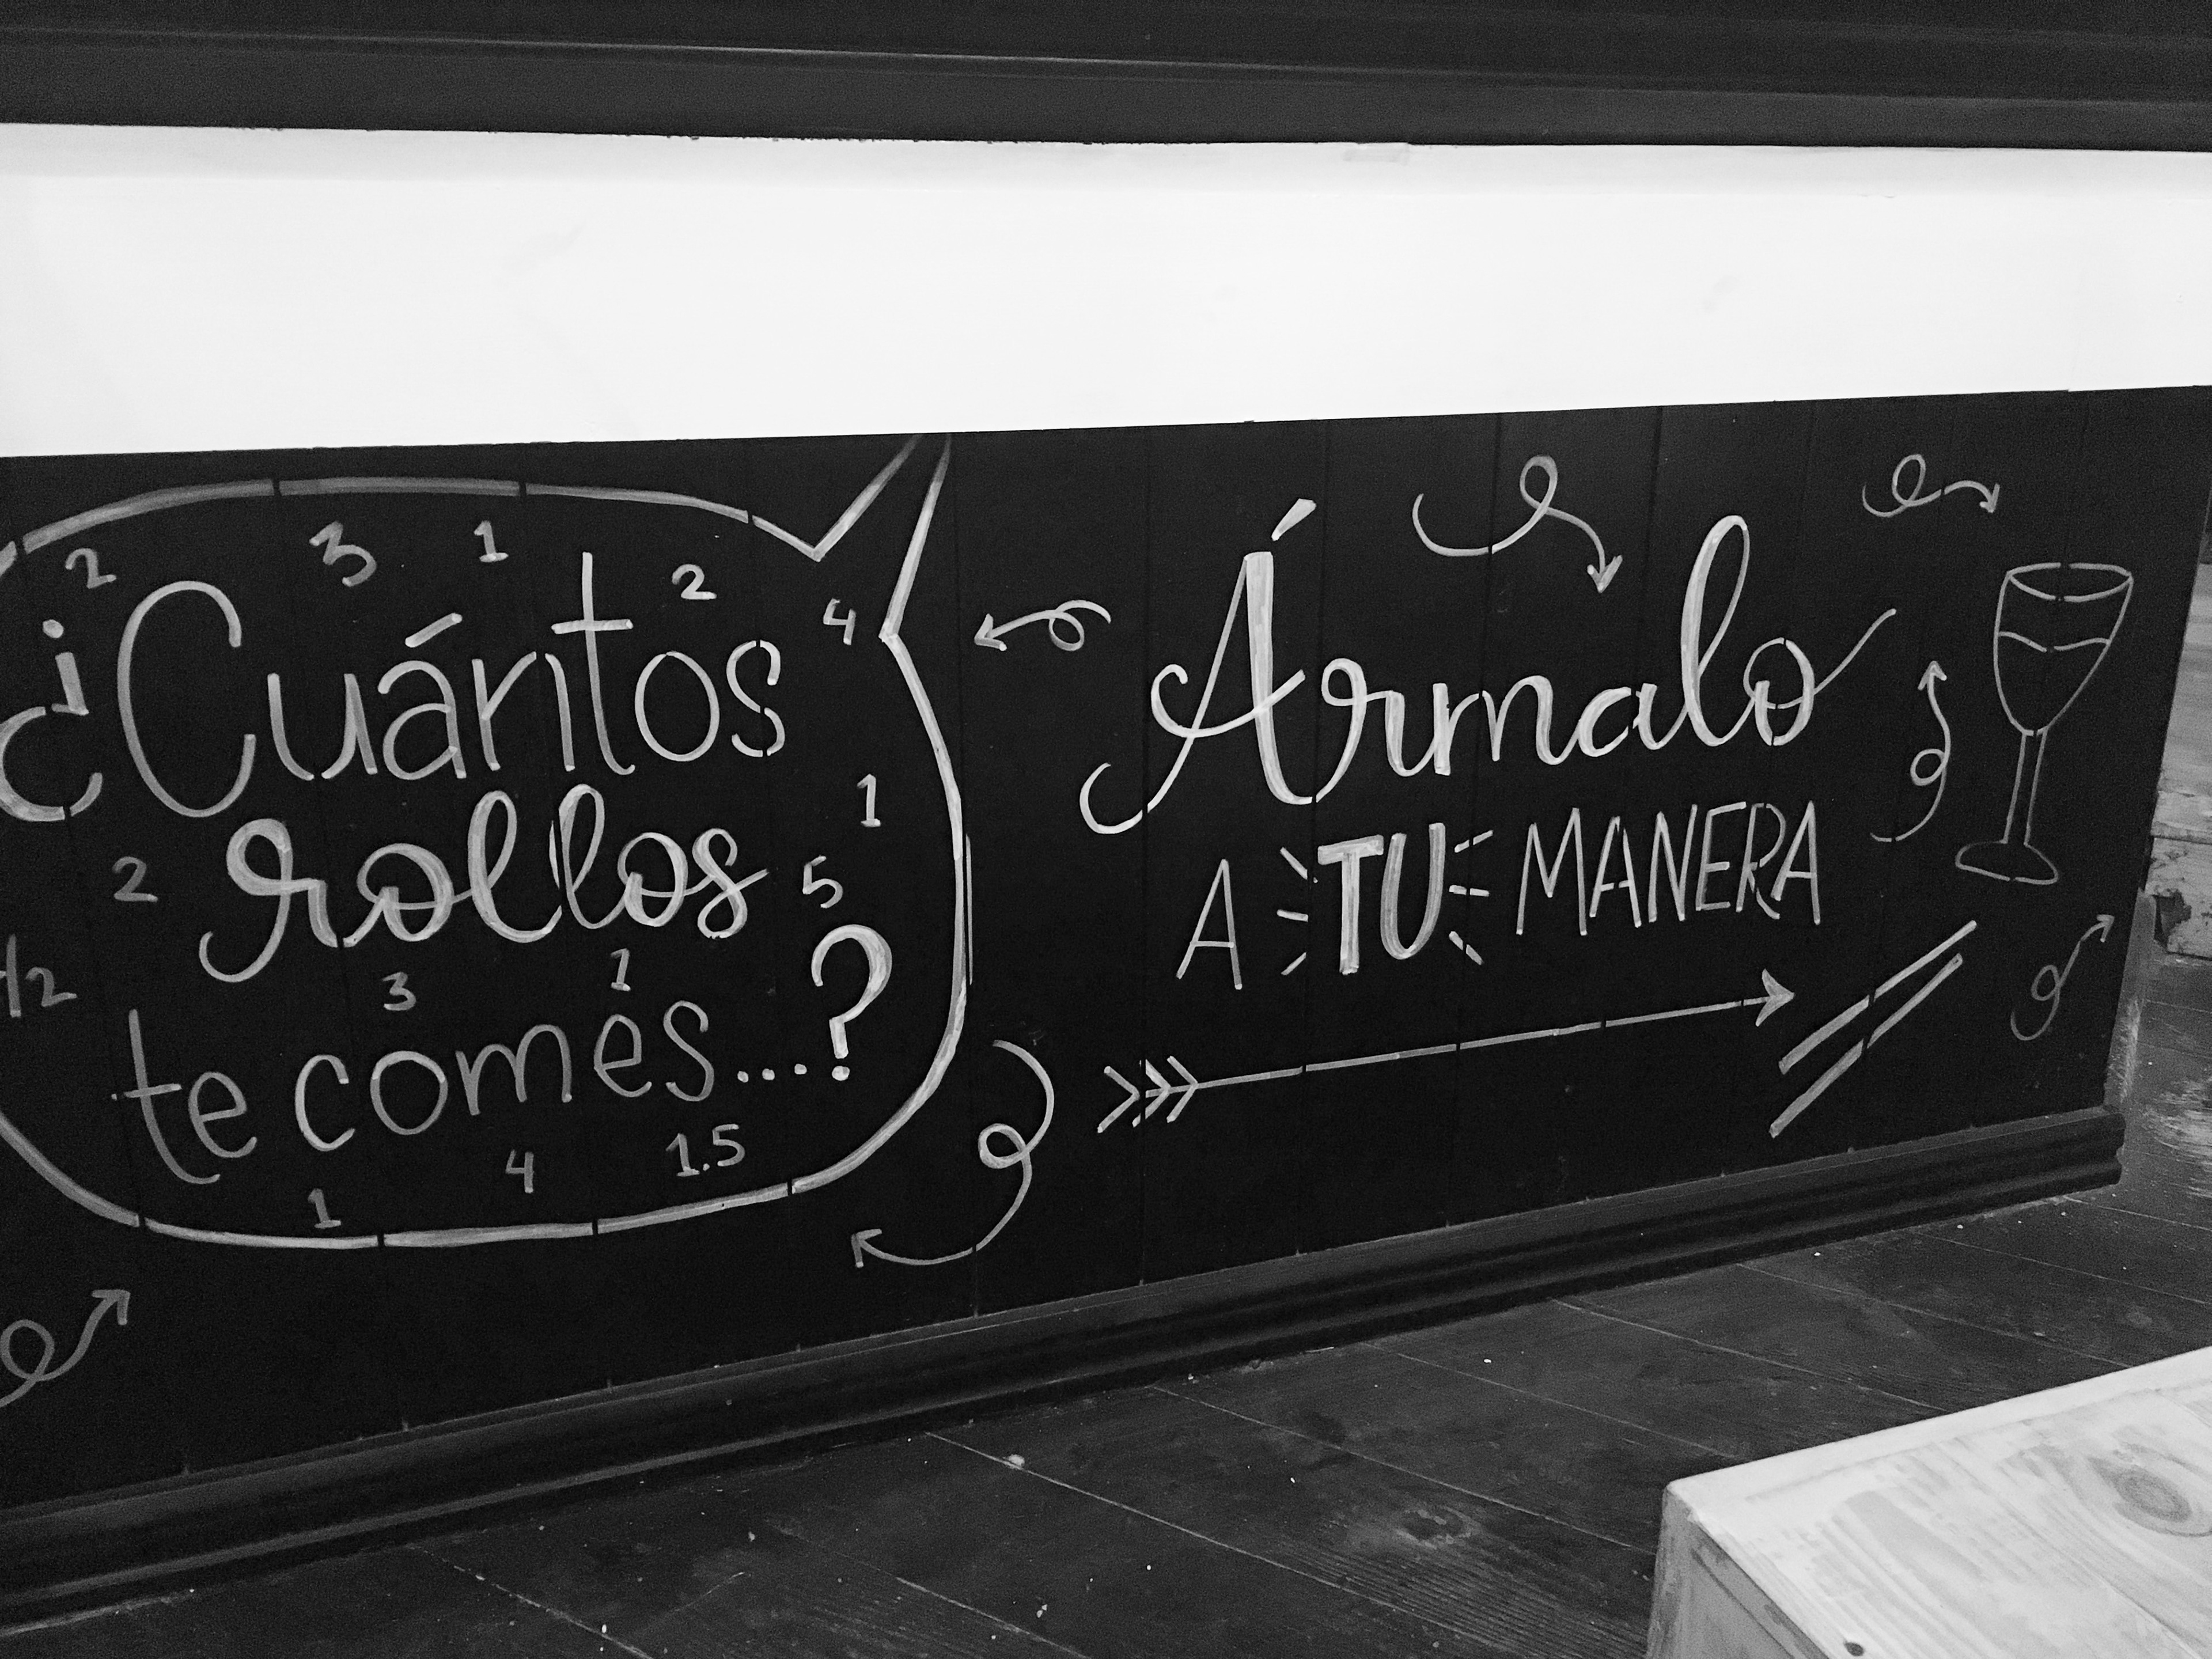 2 3 1 2 4
¿Cuántos
1
rollos
2 5
1/2 3 1
te comes...?
1 4 1.5
Ármalo
A TU MANERA